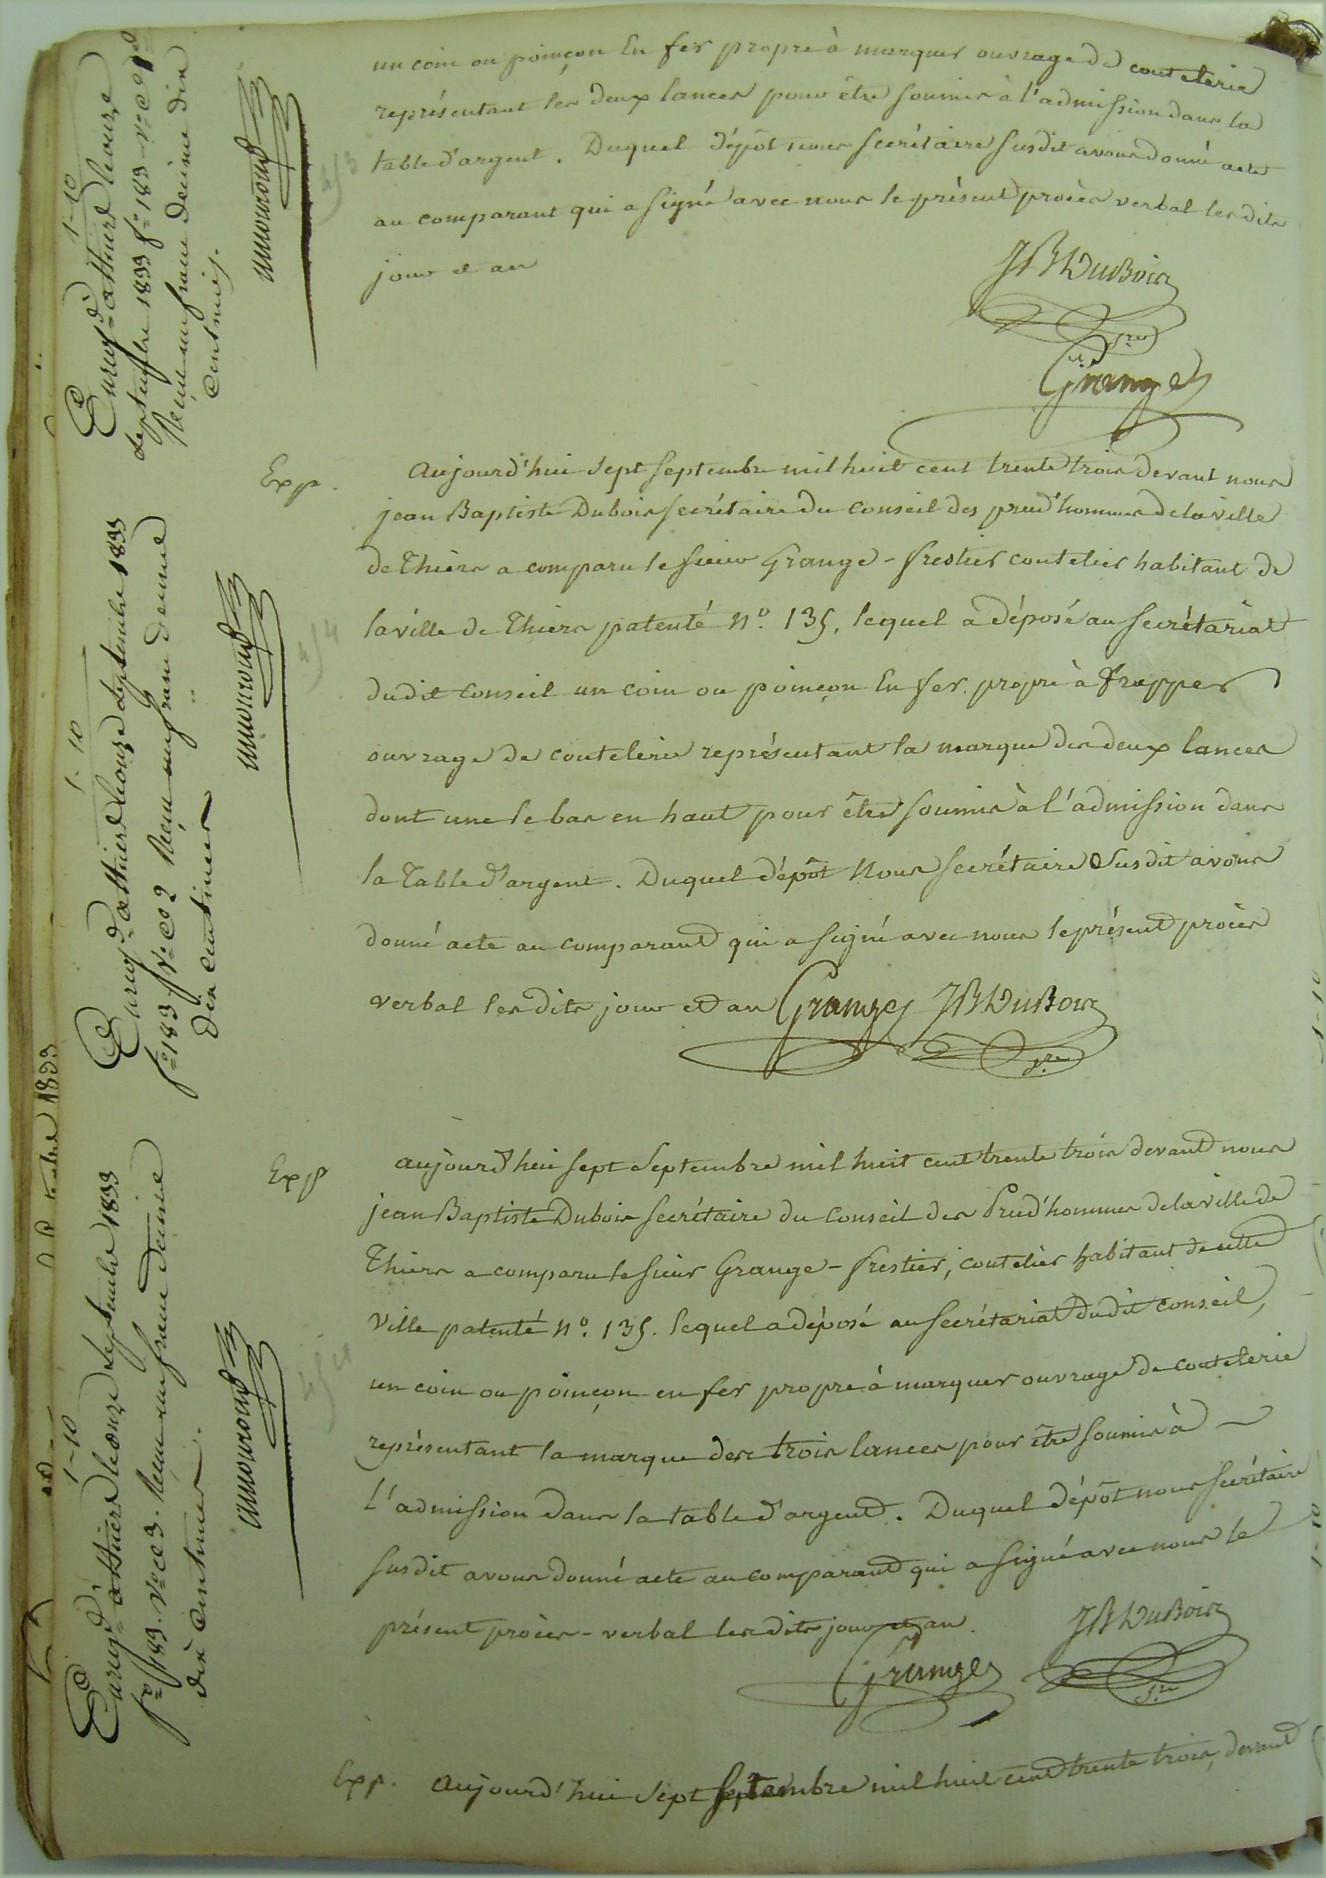 un coin ou poinçon En fer propre à marquer ouvrage de coutelerie
représentant les deux lances pour être soumis à l'admission dans la
table d'argent. Duquel dépôt nous secrétaire susdit avons donné acte
au comparant qui a signé avec nous le présent procès verbal les dits
jour et an
JB Dubois
Sre
Grange
Exp.
aujourd'hui sept septembre mil huit cent trente trois devant nous
jean Baptiste Dubois secrétaire du Conseil des prud'hommes de la ville
de Thiers a comparu le sieur Grange - frestier coutelier habitant de
la ville de Thiers patenté N.° 135, lequel a déposé au secrétariat
dudit Conseil un coin ou poinçon En fer propre à frapper
ouvrage de coutelerie représentant la marque des deux lances
dont une le bas en haut pour être soumis à l'admission dans
la Table d'argent. Duquel dépôt Nous secrétaire Susdit avons
donné acte au comparant qui a signé avec nous le présent procès
verbal les dits jour et an Grange JB Dubois
Sre
Exp
aujourd'hui sept Septembre mil huit cent trente trois devant nous
jean Baptiste Dubois secrétaire du Conseil des Prud'hommes de la ville de
Thiers a comparu le sieur Grange - frestier, coutelier habitant de cette
Ville patenté N.° 135. lequel a déposé au secrétariat dudit conseil,
un coin ou poinçon en fer propre à marquer ouvrage de coutelerie
représentant la marque des trois lances pour être soumis à
l'admission dans la table d'argent. Duquel dépôt nous secrétaire
susdit avons donné acte au comparant qui a signé avec nous le
présent procès - verbal les dits jour et an.
JB Dubois
Grange
Sre
Exp. aujourd'hui sept septembre mil huit cent trente trois, devant
1-10
Enregé à thiers le onze
septembre 1833 f° 183 v° ce 1
Reçu un franc decime dix
centimes.
1-10
Enregé à thiers le onze septembre 1833
f° 183 v° ce 2 Reçu un franc decime
dix centimes
1-10
Enregé à thiers le onze septembre 1833
f° 183. v° ce 3. Reçu un franc decime
dix centimes.